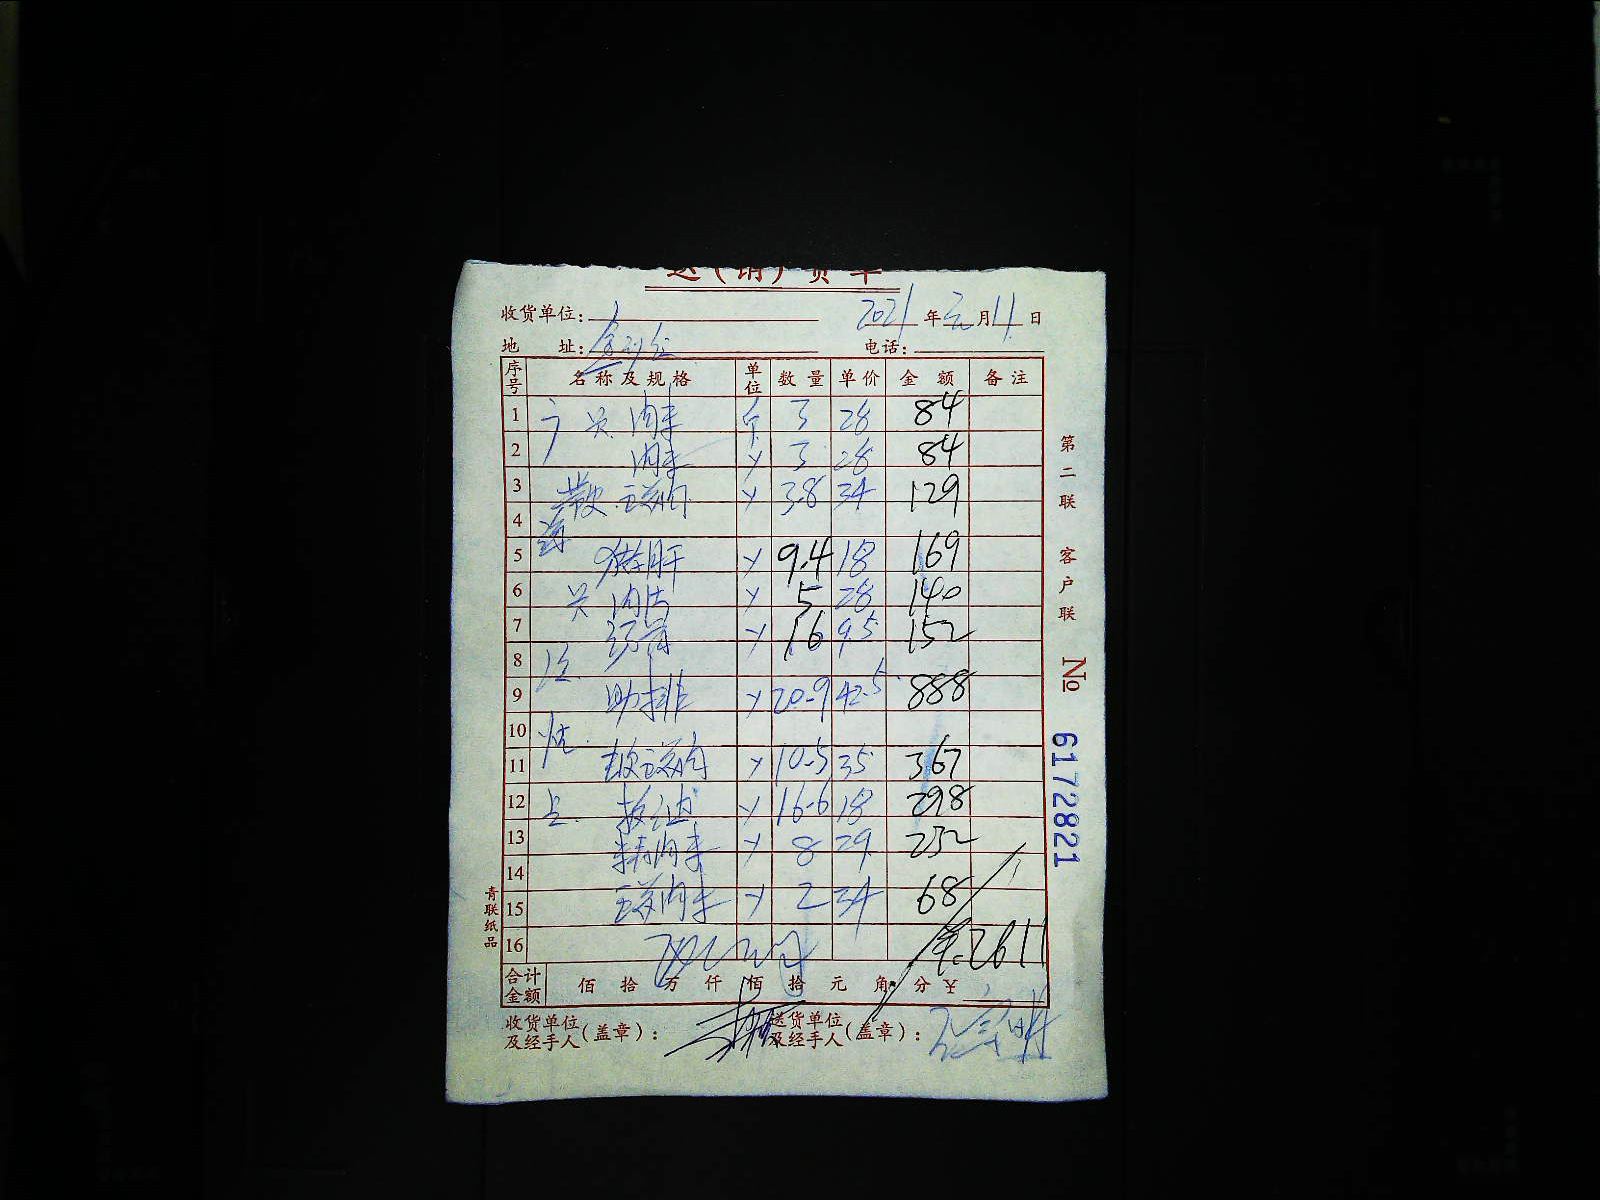 送(销)货单
收货单位:
2021年元月11日
地 址:
电话:
序号 名称及规格 单位 数量 单价 金额 备注
1 肉末 斤 3 28 84
2 肉末 〃 3 28 84
3 带皮 五花肉 〃 3.8 34 129
4
5 猪肝 〃 9.4 18 169
6 〃 5 28 140
7 〃 16 9.5 152
8
9 肋排 〃 20.9 42.5 888
10
11 五花肉 〃 10.5 35 367
12 板油 〃 16.6 18 298
13 精肉末 〃 8 29 232
14
15 五花肉末 〃 2 34 68
16 2611
合计金额 佰 拾 万 仟 佰 拾 元 角 分 ¥
收货单位及经手人(盖章):
送货单位及经手人(盖章):
第二联 客户联
No 6172821
青联纸品